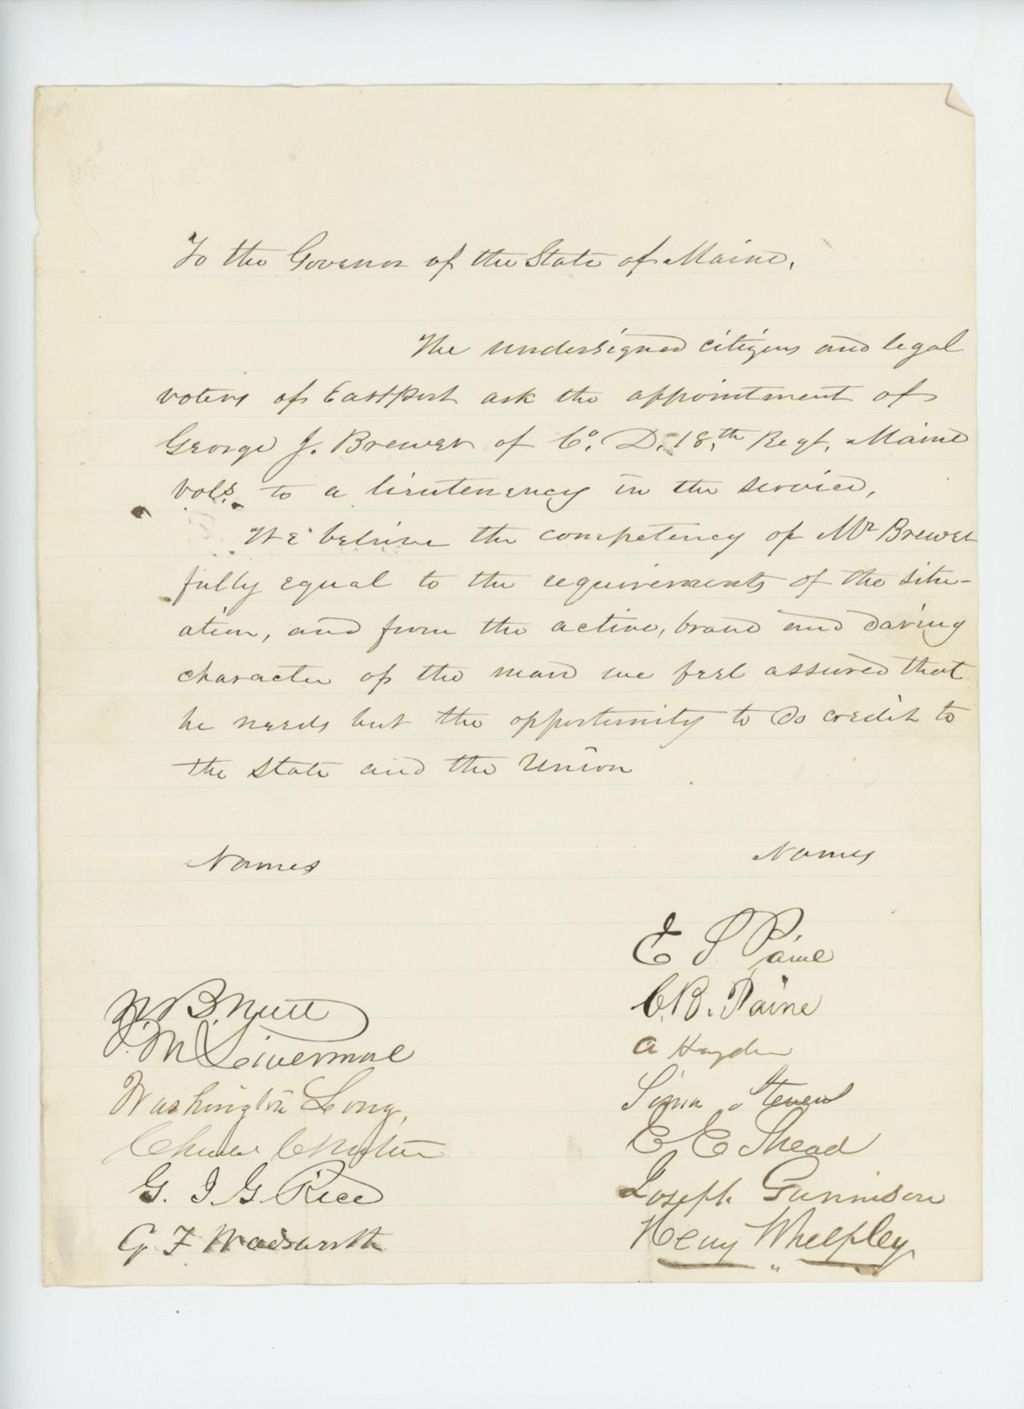 To the Governor of the State of Maine,
The undersigned citizens and legal
voters of Eastport ask the appointment of
George J. Brewer of Co. D. 18.th Regt. Maine
Vols. to a lieutenency in the service,
We believe the competency of Mr Brewer
fully equal to the requirements of the situ-
ation, and from the active, brave and daring
character of the man we feel assured that
he needs but the opportunity to do credit to
the State and the Union
Names
Names
B. Nutt
M Livermore
Washington Long,
G. I. G. Rice
G. F. Wadsworth
E S Paine
C. B. Paine
A Hayden
Simon Stevens
E E Shead
Joseph Gunnison
Henry Whelpley